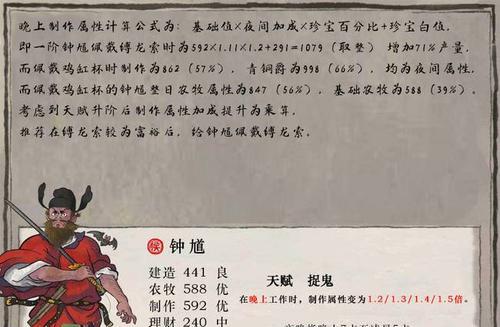 晚上制作属性计算公式为：基础值×夜间加成×珍宝百分比+珍宝白值，
即一阶钟馗佩戴缚龙索时为592×1.11×1.2+291=1079（取整）增加71%产量，
而佩戴鸡缸杯时制作为862（57%），青铜爵为998（66%），均为夜间属性。
而佩戴鸡缸杯的钟馗整日农牧属性为847（56%），基础农牧为588（39%）。
考虑到天赋升阶后制作属性加成提升为乘算，
推荐在缚龙索较为富裕后，给钟馗佩戴缚龙索。
侯 钟馗
建造 441 良
农牧 588 优
制作 592 优
理财 240 中
天赋 捉鬼
在晚上工作时，制作属性变为1.2/1.3/1.4/1.5倍。